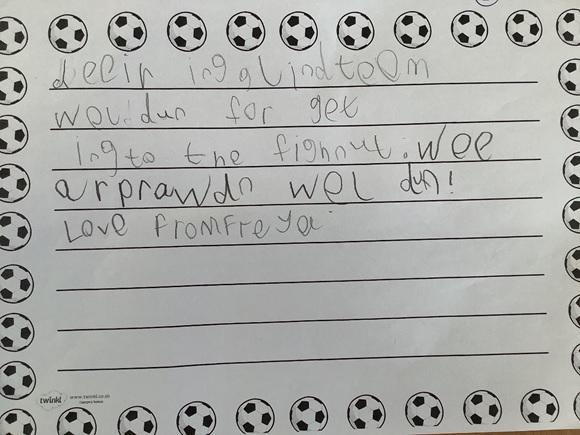 deeir inglindteem
weldun for get
ingto the fighnul. wee
arprawdn wel dun!
Love fromfreya
twinkl www.twinkl.co.uk